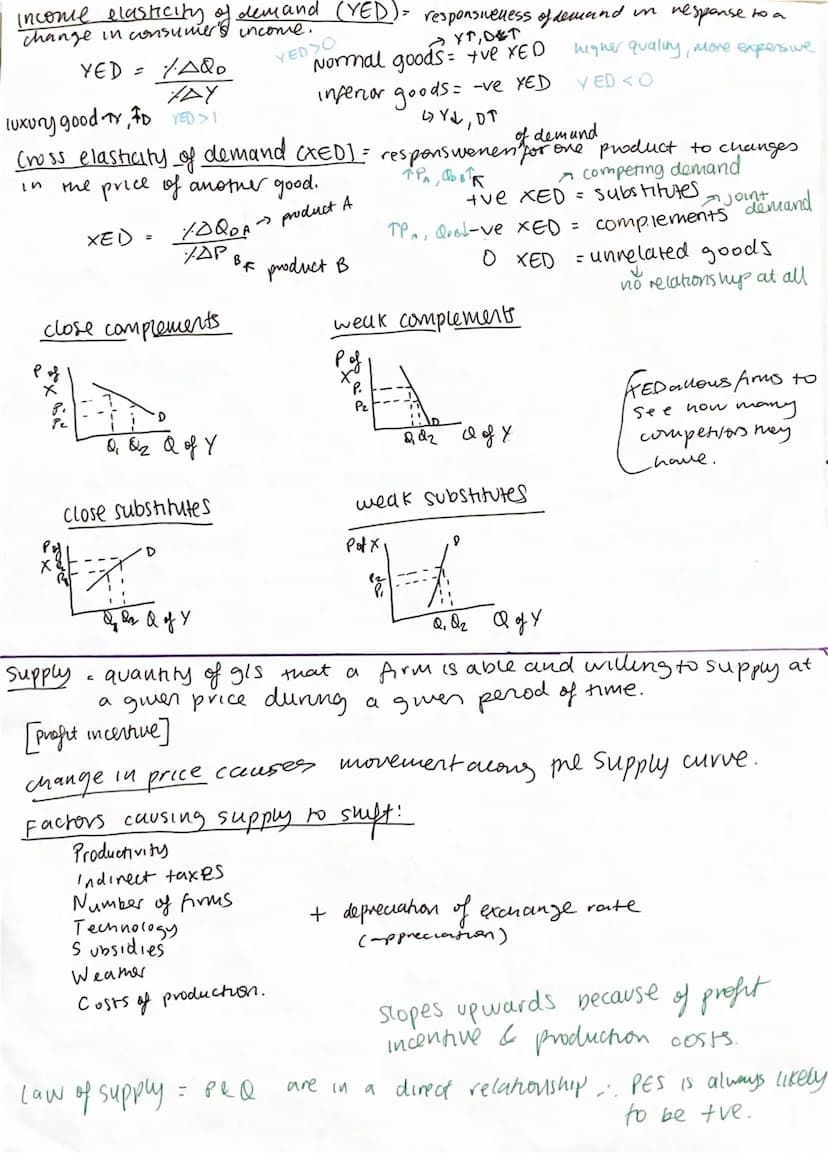 Income elasticity of demand (YED) = responsiveness of demand in response to a
change in consumer's income.
YED = %ΔQD / %ΔY
YED>0
↳ Y↑, D↑
Normal goods = +ve YED
higher quality, more expensive
inferior goods = -ve YED
YED < 0
↳ Y↓, D↑
luxury good ↑Y, ⇑D
YED>1
Cross elasticity of demand (XED) = responsiveness of demand for one product to changes
in the price of another good.
XED = %ΔQDA → product A / %ΔP B ↖ product B
↗ competing demand
+ve XED = substitutes
↗ joint demand
-ve XED = complements
0 XED = unrelated goods
↓
no relationship at all
close complements
P of X
P1
P2
D
Q1 Q2 Q of Y
weak complements
P of X
P1
P2
D
Q1 Q2 Q of Y
XED allows firms to
see how many
competitors they
have.
close substitutes
P of X
D
Q1 Q2 Q of Y
weak substitutes
P of X
P2
P1
D
Q1 Q2 Q of Y
Supply = quantity of g/s that a firm is able and willing to supply at
a given price during a given period of time.
[profit incentive]
change in price causes movement along the supply curve.
Factors causing supply to shift:
Productivity
Indirect taxes
Number of firms
Technology
Subsidies
Weather
Costs of production.
+ depreciation of exchange rate
(appreciation)
slopes upwards because of profit
incentive & production costs.
Law of supply = P&Q are in a direct relationship ∴ PES is always likely
to be +ve.